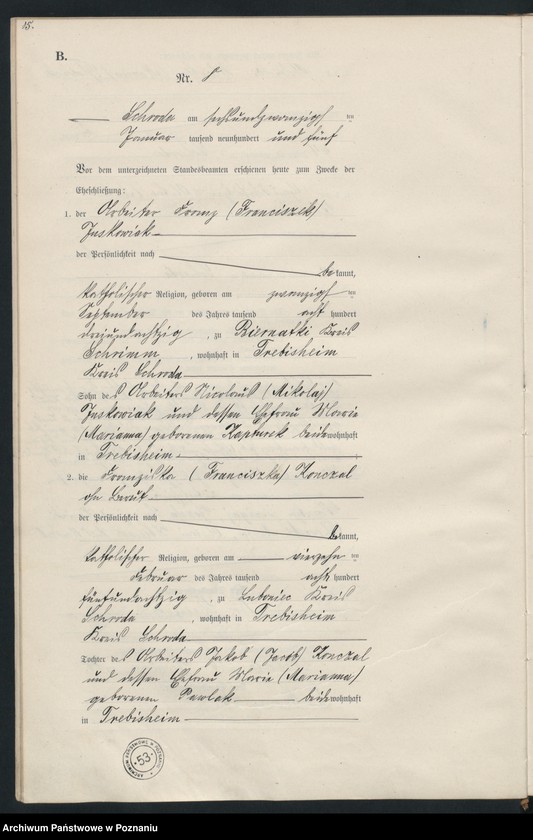 15.
B.
Nr. 8
Schroda am sechsundzwanzigsten
Januar tausend neunhundert und fünf
Vor dem unterzeichneten Standesbeamten erschienen heute zum Zwecke der
Eheschließung:
1. der Arbeiter Franz (Franciszek)
Juskowiak
der Persönlichkeit nach
bekannt,
katholischer Religion, geboren am zwanzigsten
September des Jahres tausend acht hundert
dreiundachtzig, zu Biernatki Kreis
Schrimm, wohnhaft in Trebisheim
Kreis Schroda
Sohn des Arbeiters Nicolaus (Mikolaj)
Juskowiak und dessen Ehefrau Marie
(Marianna) geborenen Kapturek beide wohnhaft
in Trebisheim.
2. die Franziska (Franciszka) Konczal
ohne Beruf
der Persönlichkeit nach
bekannt,
katholischer Religion, geboren am vierzehnten
Februar des Jahres tausend acht hundert
fünfundachtzig, zu Luboniec Kreis
Schroda, wohnhaft in Trebisheim
Kreis Schroda
Tochter des Arbeiters Jakob (Jacob) Konczal
und dessen Ehefrau Marie (Marianna)
geborenen Pawlak beide wohnhaft
in Trebisheim
ARCHIWUM PAŃSTWOWE W POZNANIU
·53·
Archiwum Państwowe w Poznaniu